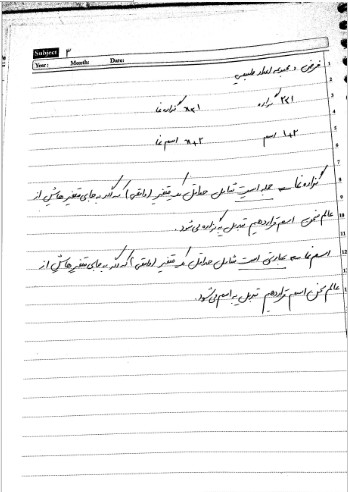 Subject ۳
Year: Month: Date:
فرض: مجموعه اعداد طبیعی
۲>۱ گزاره x>۱ گزاره‌نما
۱+۲ اسم x+۲ اسم‌نما
گزاره‌نما → جمله‌ایست شامل حداقل یک متغیر (واقعی) که اگر به جای متغیرهایش از
عالم سخن اسم قرار دهیم تبدیل به گزاره می‌شود.
اسم‌نما → عبارتی است شامل حداقل یک متغیر (واقعی) که اگر به جای متغیرهایش از
عالم سخن اسم قرار دهیم تبدیل به اسم می‌شود.